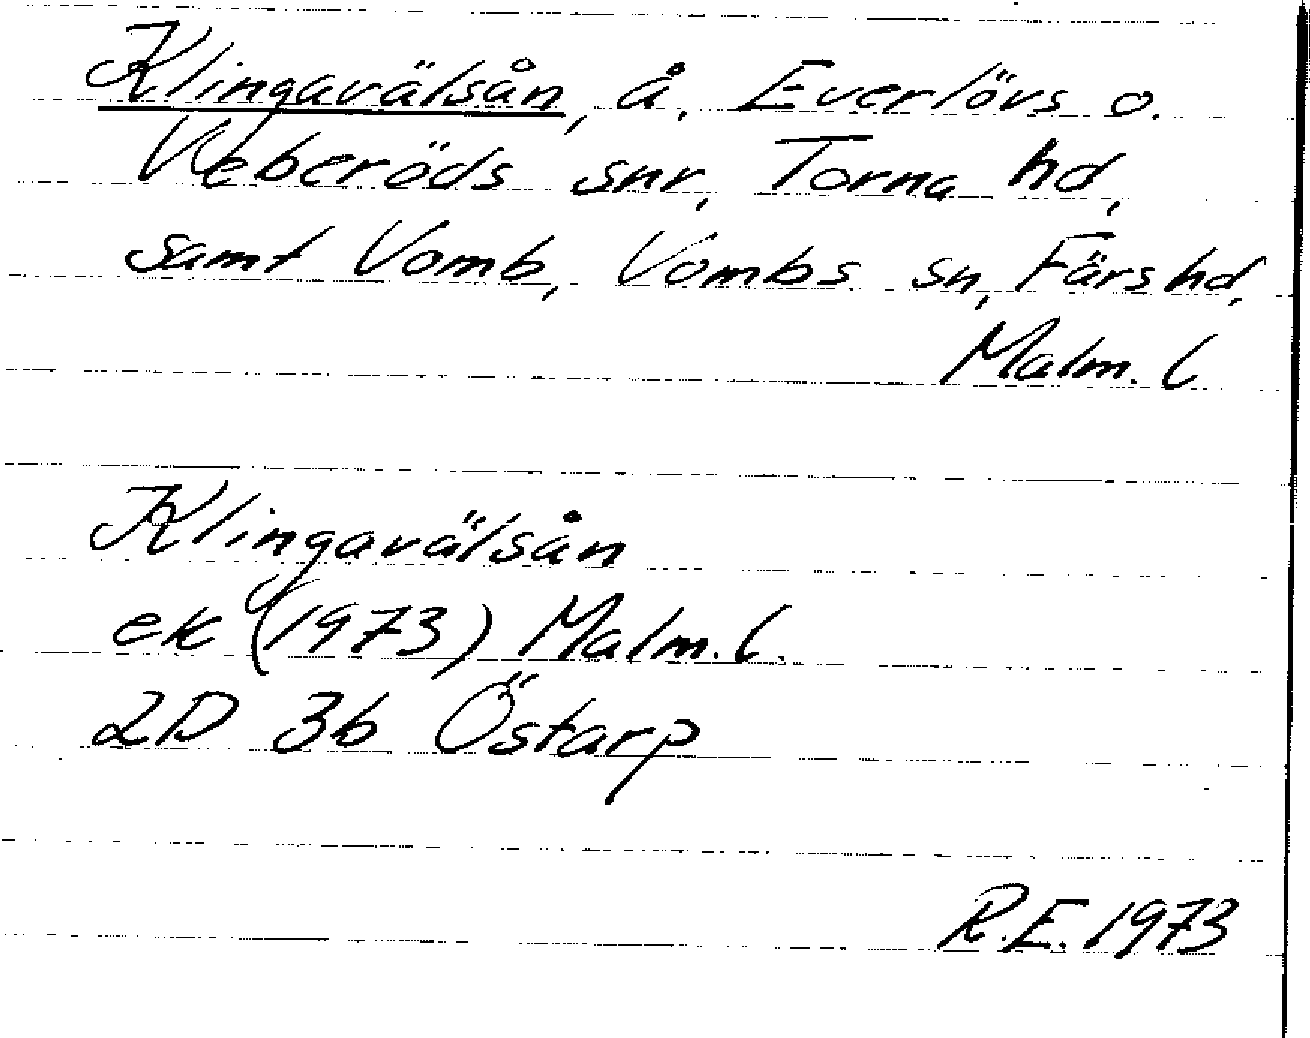 Klingavälsån, å, Everlövs o.
Veberöds snr, Torna hd,
samt Vomb, Vombs sn, Färs hd,
Malm. l
Klingavälsån
ek (1973) Malm. l.
2D 3b Östarp
R.E. 1973